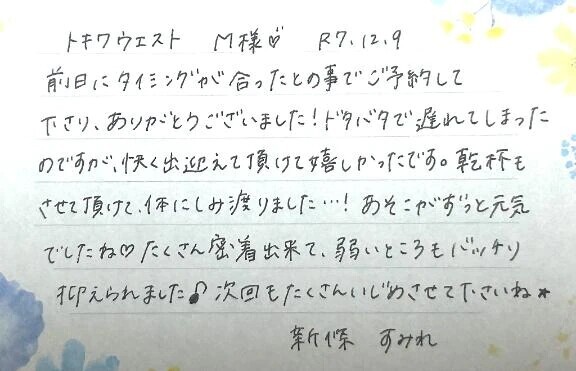 トキワウエスト M様♡ R7.12.9
前日にタイミングが合ったとの事でご予約して
下さり、ありがとうございました！ドタバタで遅れてしまった
のですが、快く出迎えて頂けて嬉しかったです。乾杯も
させて頂けて、体にしみ渡りました…！あそこがずっと元気
でしたね♡たくさん密着出来て、弱いところもバッチリ
抑えられました♪次回もたくさんいじめさせて下さいね★
新條 すみれ